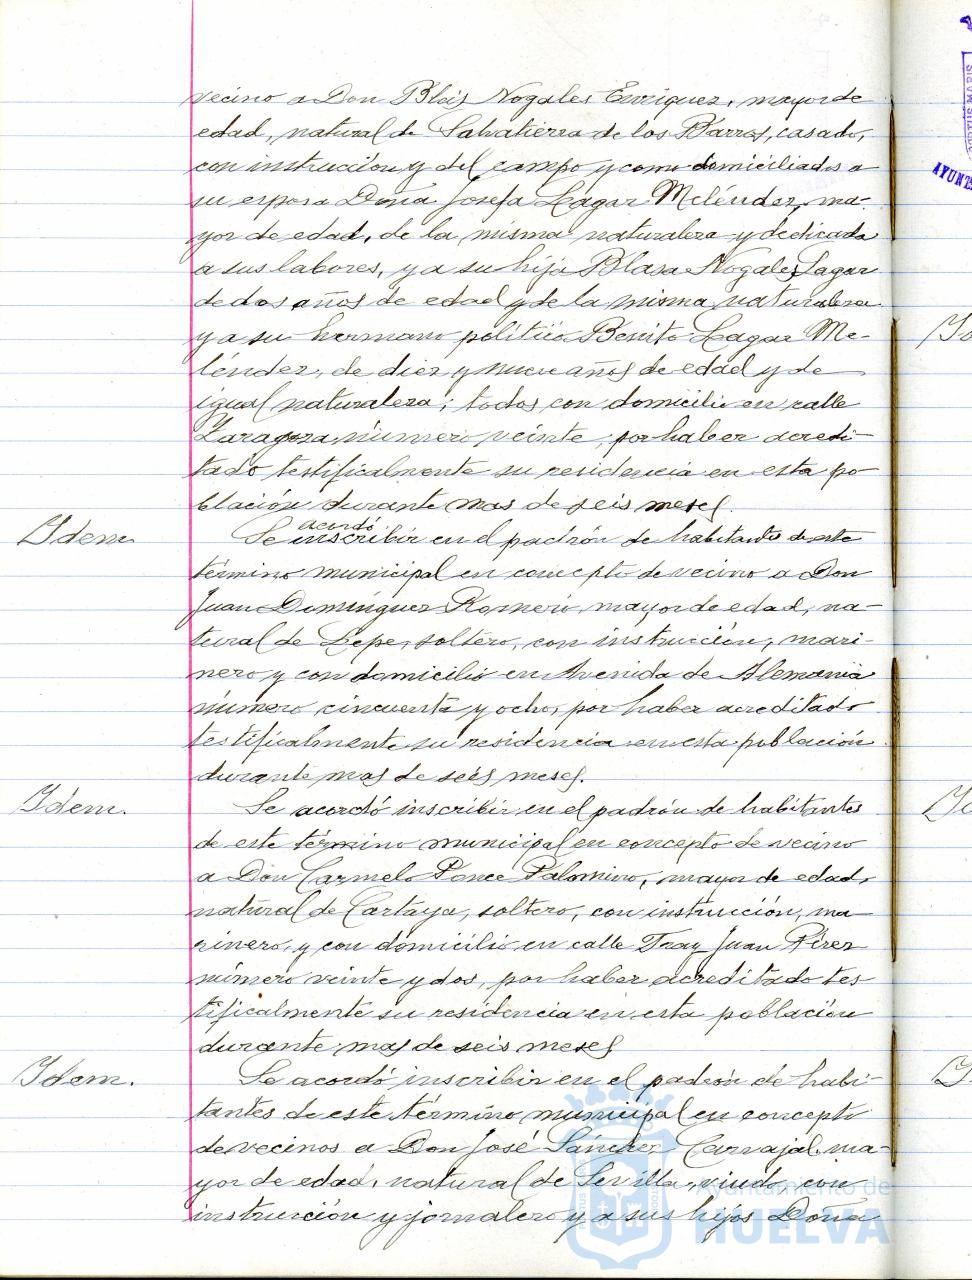 vecino a Don Blás Nogales Enriquez, mayor de
edad, natural de Salvatierra de los Barros, casado,
con instrucción y del campo y como domiciliados a
su esposa Doña Josefa Lagar Meléndez, ma-
yor de edad, de la misma naturaleza y dedicada
a sus labores, y a su hija Blasa Nogales Lagar
de dos años de edad y de la misma naturaleza
y a su hermano político Benito Lagar Me-
léndez, de diez y nueve años de edad y de
igual naturaleza; todos con domicilio en calle
Zaragoza, número veinte, por haber acredi-
tado testificalmente su residencia en esta po-
blación durante mas de seis meses.
Idem. Se acordó inscribir en el padrón de habitantes de este
término municipal en concepto de vecino a Don
Juan Domínguez Romero, mayor de edad, na-
tural de Lepe, soltero, con instrucción, mari-
nero, y con domicilio en Avenida de Alemania
número cincuenta y ocho, por haber acreditado
testificalmente su residencia en esta población
durante mas de seis meses.
Idem. Se acordó inscribir en el padrón de habitantes
de este término municipal en concepto de vecino
a Don Carmelo Ponce Palomino, mayor de edad,
natural de Cartaya, soltero, con instrucción, ma-
rinero, y con domicilio en calle Fray Juan Pérez
número veinte y dos, por haber acreditado tes
tificalmente su residencia en esta población
durante mas de seis meses
Idem. Se acordó inscribir en el padrón de habi-
tantes de este término municipal en concepto
de vecinos a Don José Sánchez Carvajal, ma-
yor de edad, natural de Sevilla, viudo, con
instrucción y jornalero y a sus hijos Doña
Ayuntamiento de
HUELVA